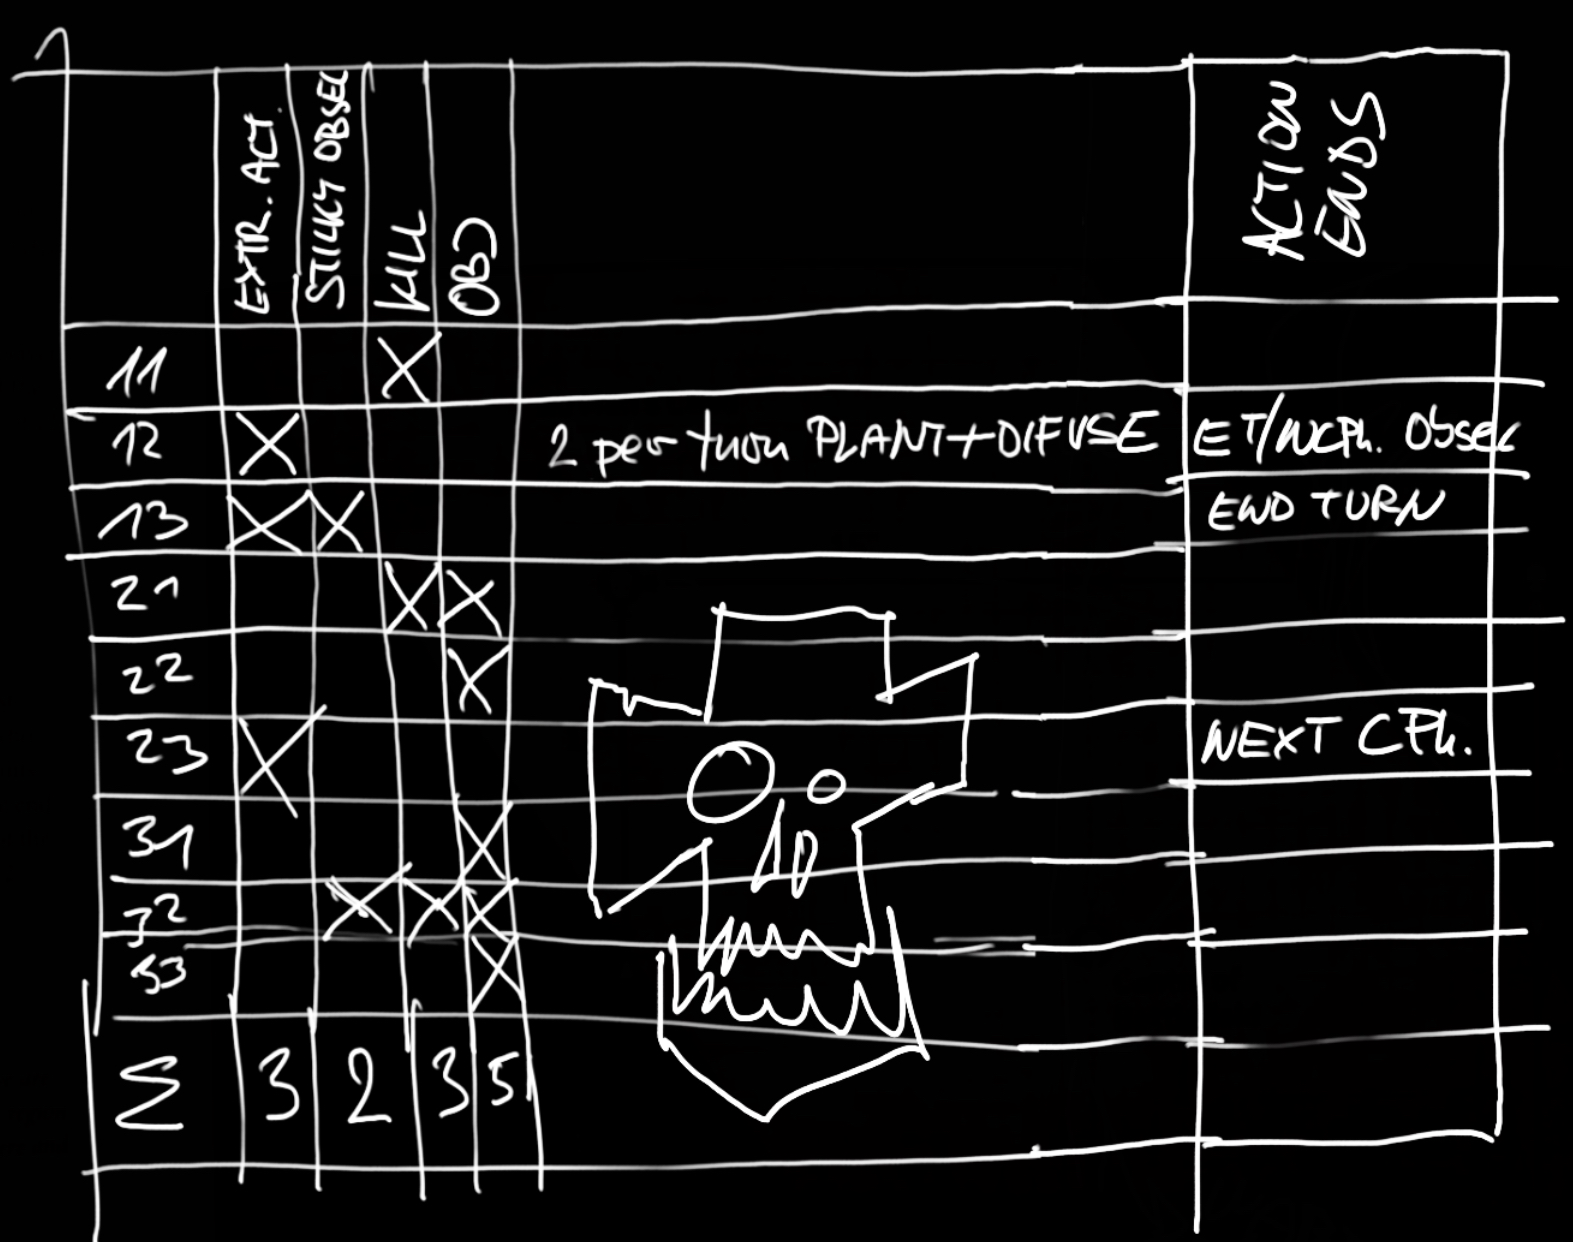 EXTR. ACT. STICKY OBSEC KILL OBJ ACTION ENDS
11 X
12 X 2 per turn PLANT+DIFUSE ET/NCPh. Obsec
13 X X END TURN
21 X X
22 X
23 X NEXT CPh.
31 X
32 X X X
33 X
Σ 3 2 3 5